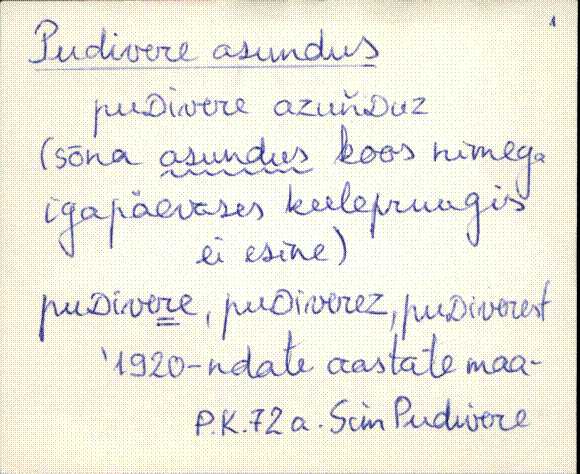 1
Pudivere asundus
puDivere azuňDuz
(sõna asundus koos nimega
igapäevases keelepruugis
ei esine)
puDivere, puDiverez, puDiverest
'1920-ndate aastate maa-
P.K. 72 a. Sim Pudivere